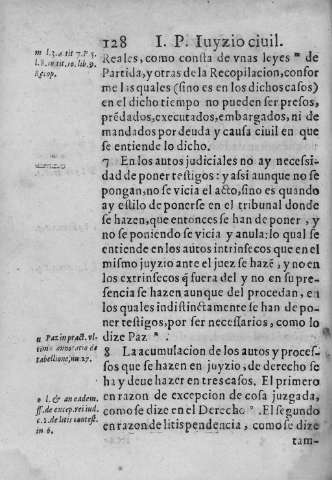 128 I. P. Iuyzio ciuil.
Reales, como consta de vnas leyes m de
Partida, y otras de la Recopilacion, confor
me las quales (sino es en los dichos casos)
en el dicho tiempo no pueden ser presos,
prẽdados, executados, embargados, ni de
mandados por deuda y causa ciuil en que
se entiende lo dicho.
7 En los autos judiciales no ay necessi-
dad de poner testigos: y assi aunque no se
pongan, no se vicia el acto, sino es quando
ay estilo de ponerse en el tribunal donde
se hazen, que entonces se han de poner, y
no se poniendo se vicia y anula: lo qual se
entiende en los autos intrinsecos que en el
mismo juyzio ante el juez se hazẽ, y no en
los extrinsecos q̃ fuera del y no en su pre-
sencia se hazen aunque del procedan, en
los quales indistinctamente se han de po-
ner testigos, por ser necessarios, como lo
dize Paz n.
8 La acumulacion de los autos y proces-
sos que se hazen en juyzio, de derecho se
ha y deue hazer en tres casos. El primero
en razon de excepcion de cosa juzgada,
como se dize en el Derecho o. El segundo
en razon de litispendencia, como se dize
tam-
m l.3.
tit 7. P.5.
tit.10. lib.9.
n Paz in pract. vl-
timo annotatio de
tabellione, nu 27.
o l. & an eadem.
ff. de excep. rei iud.
c.2. de litis contest.
in 6.